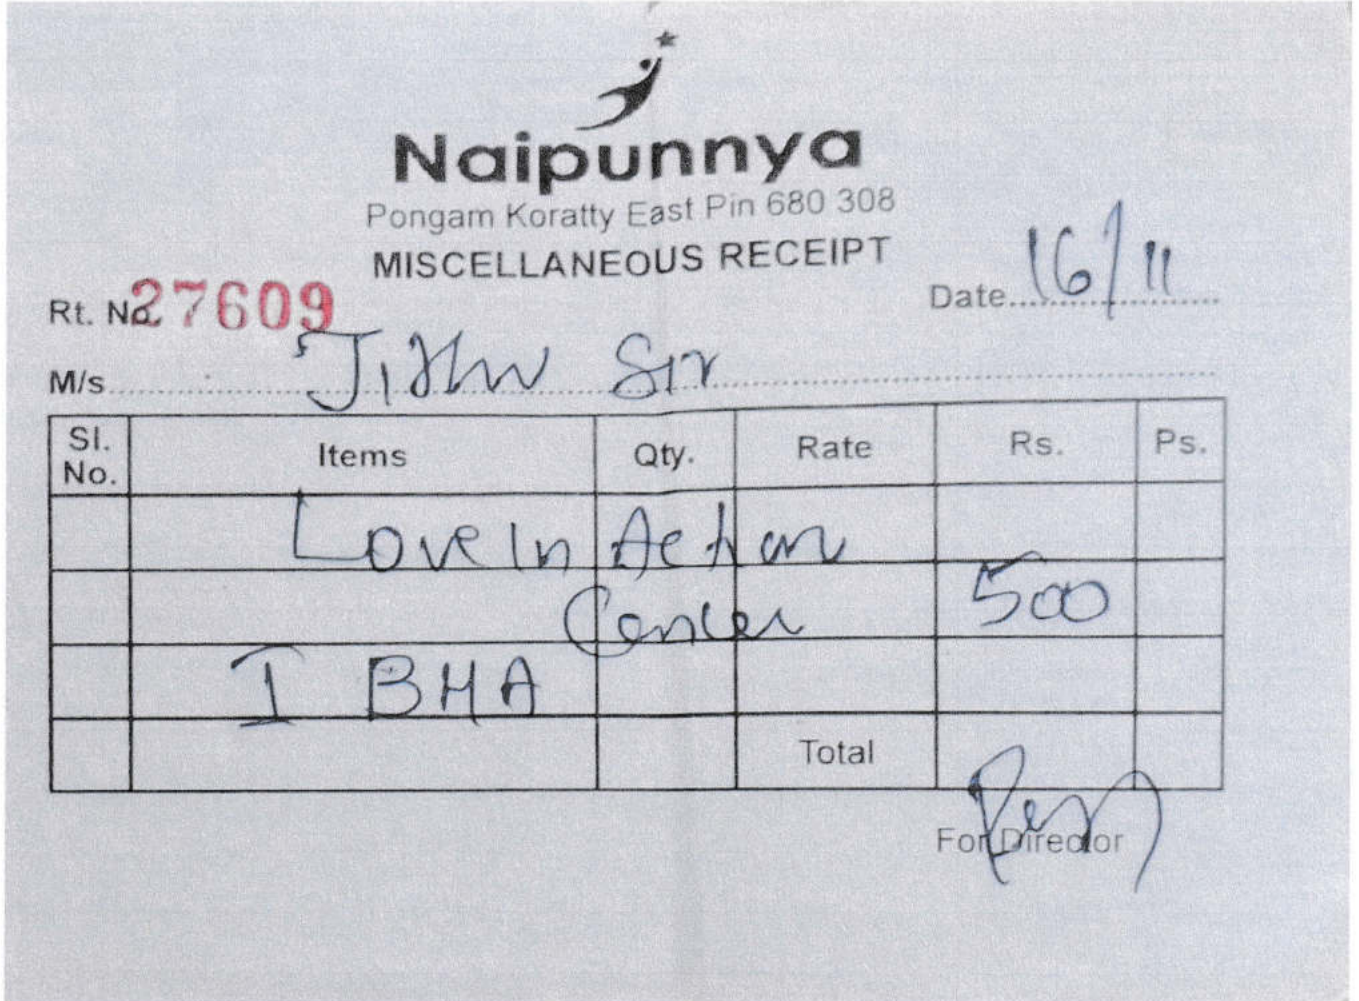 Naipunnya
Pongam Koratty East Pin 680 308
MISCELLANEOUS RECEIPT
Rt. No. 27609 Date 16/11
M/s Jithu Sir
Sl. No. Items Qty. Rate Rs. Ps.
Love In Action
Center 500
I BHA
Total
For Director